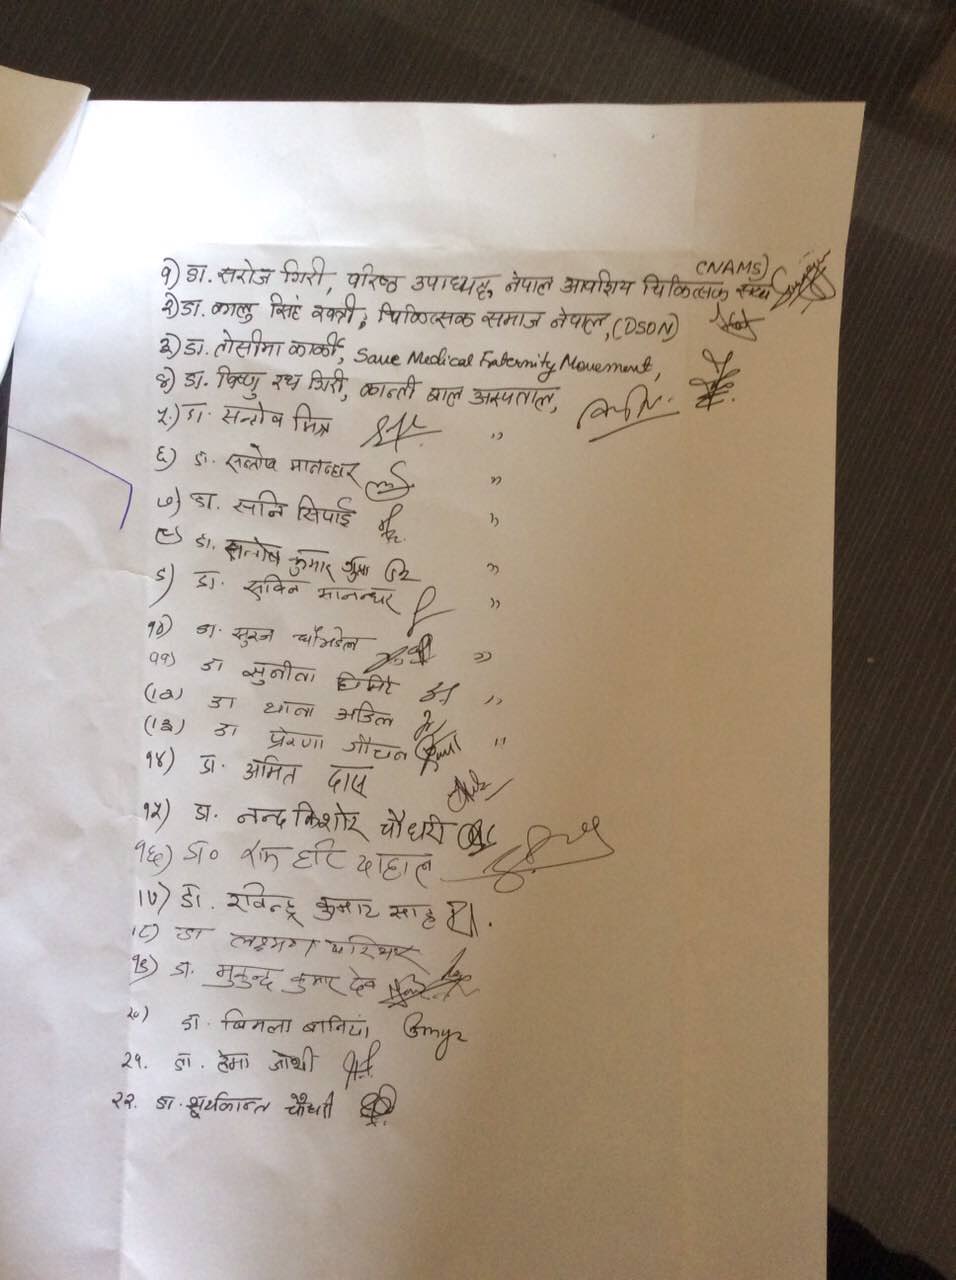 (NAMS)
१) डा. सरोज गिरी, वरिष्ठ उपाध्यक्ष, नेपाल आवासिय चिकित्सक संघ
२) डा. कालु सिंह खत्री, चिकित्सक समाज नेपाल, (DSON)
३) डा. तोसीमा कार्की, Save Medical Fraternity Movement,
४) डा. विष्णु रथ गिरी, कान्ती बाल अस्पताल,
५.) डा. सन्तोष मिश्र "
६) डा. सन्तोष मानन्धर "
७) डा. सनि सिपाई "
८) डा. सन्तोष कुमार गुप्ता "
९) डा. सुविन मानन्धर "
१०) डा. सुरज "
११) डा सुनीता घिमिरे "
(१२) डा थाना
(१३) डा प्रेरणा गौचन "
१४) डा. अमित दास
१५) डा. नन्द किशोर चौधरी
१६) डा० राम हरि दाहाल
१७) डा. रविन्द्र कुमार साह
१८) डा लक्ष्मण परियार
१९) डा. मुकुन्द कुमार देव
२०) डा. विमला बानियां
२१. डा. हेमा जोशी
२२. डा. सूर्यकान्त चौधरी